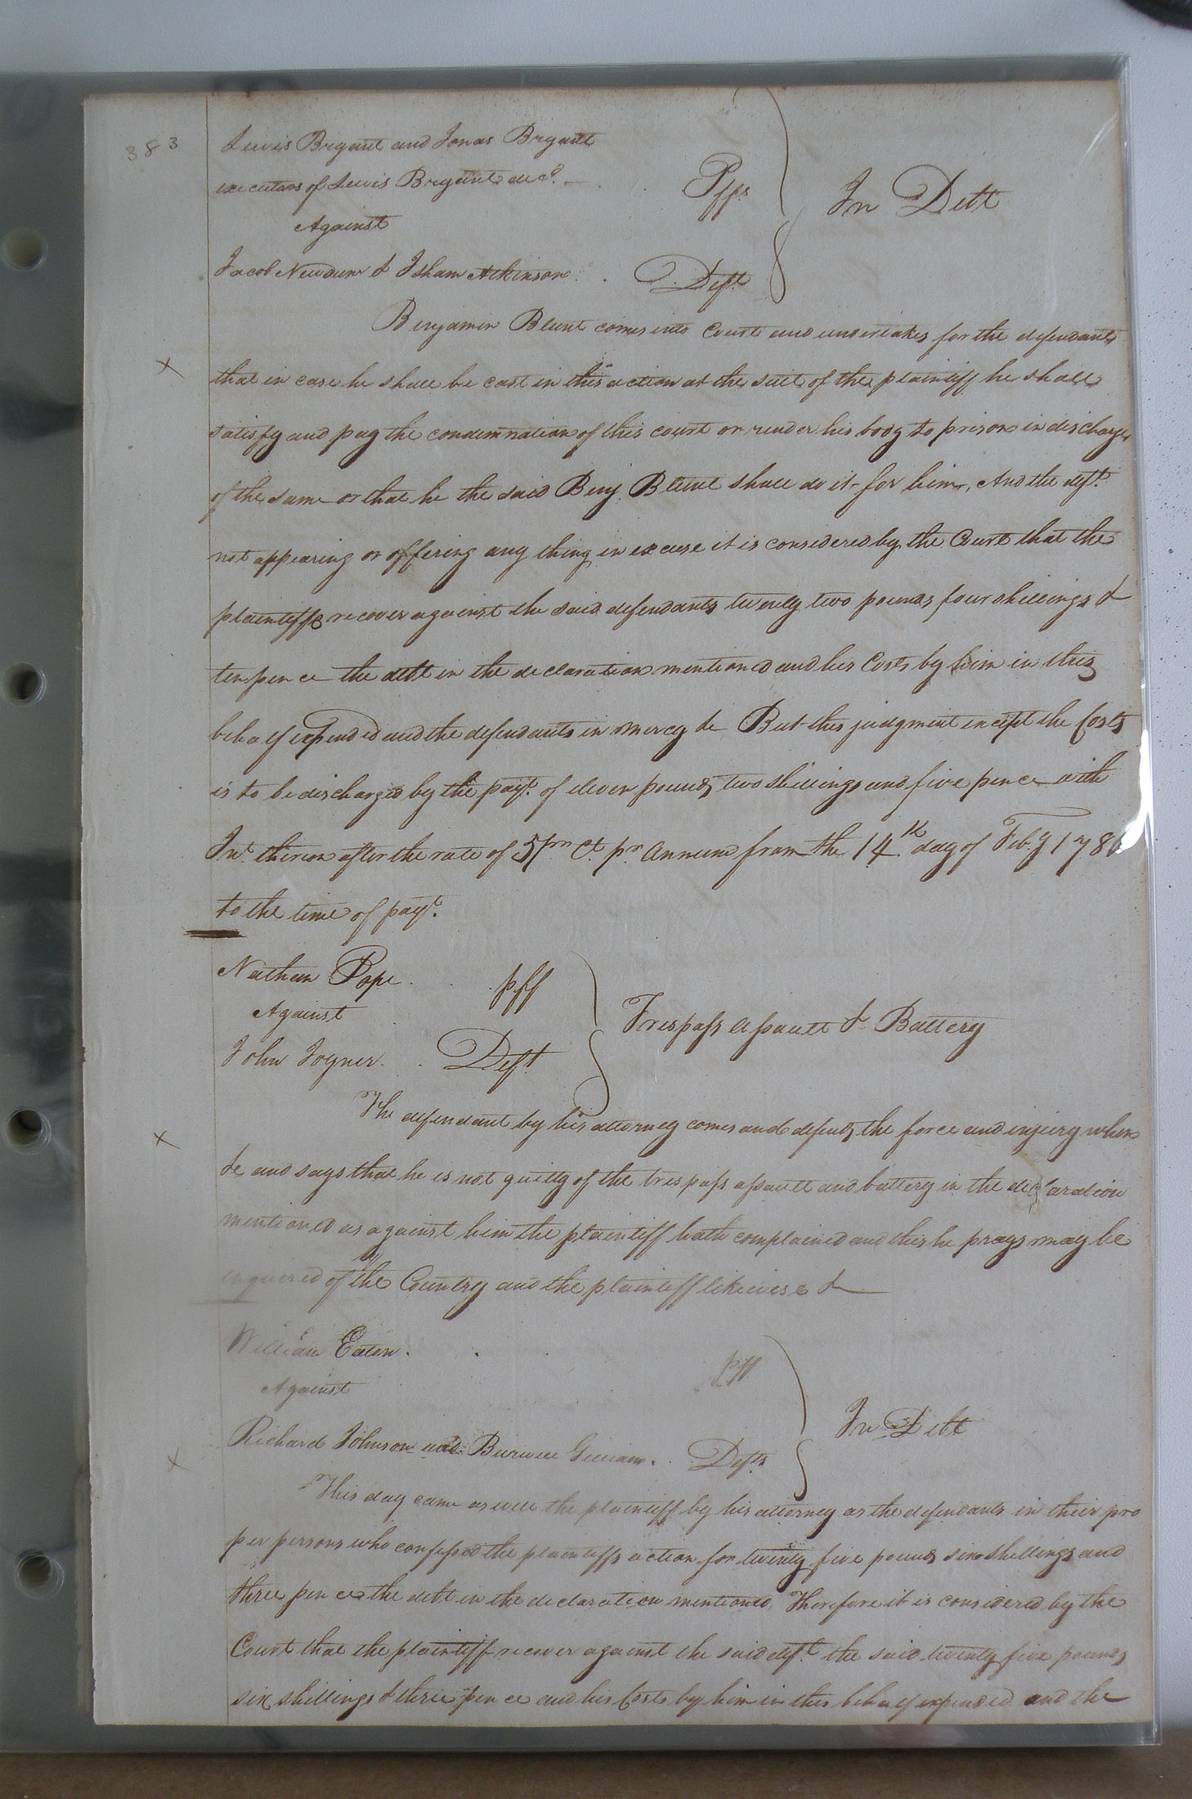 383
Lewis Bryant and Jonas Bryant
executors of Lewis Bryant decd. Pffs
In Debt
Against
Jacob Newsum & Isham Atkinson. Defts
Benjamin Blunt comes into Court and undertakes for the defendants
that in case he shall be cast in this action at the suit of the plaintiff he shall
satisfy and pay the condemnation of this court or render his body to prison in discharge
of the same or that he the said Benj. Blunt shall do it for him, And the deft.
not appearing or offering any thing in excuse it is considered by the Court that the
plaintiffs recover against the said defendants twenty two pounds four shillings &
ten pence the debt in the declaration mentioned and his Costs by him in this
behalf expended and the defendants in mercy &c But this judgment except the Costs
is to be discharged by the payt. of eleven pounds two shillings and five pence with
Int. thereon after the rate of 5 pr Ct. pr Annum from the 14th day of Feby 178
to the time of payt.
Nathan Pope. pff
Against
Trespass Assault & Battery
John Joyner. Deft
The defendant by his attorney comes and defends the force and injury when
&c and says that he is not guilty of the trespass assault and battery in the declaration
mentioned as against him the plaintiff hath complained and this he prays may be
enquired of by the Country and the plaintiff likewise &
William Eaton. pff
Against
In Debt
Richard Johnson and Burwell Gilliam. Defts
This day came as well the plaintiff by his attorney as the defendants in their pro
per persons who confessed the plaintiffs action for twenty five pounds six shillings and
three pence the debt in the declaration mentioned. Therefore it is considered by the
Court that the plaintiff recover against the said deft. the said twenty five pounds
six shillings & three pence and his Costs by him in this behalf expended and the